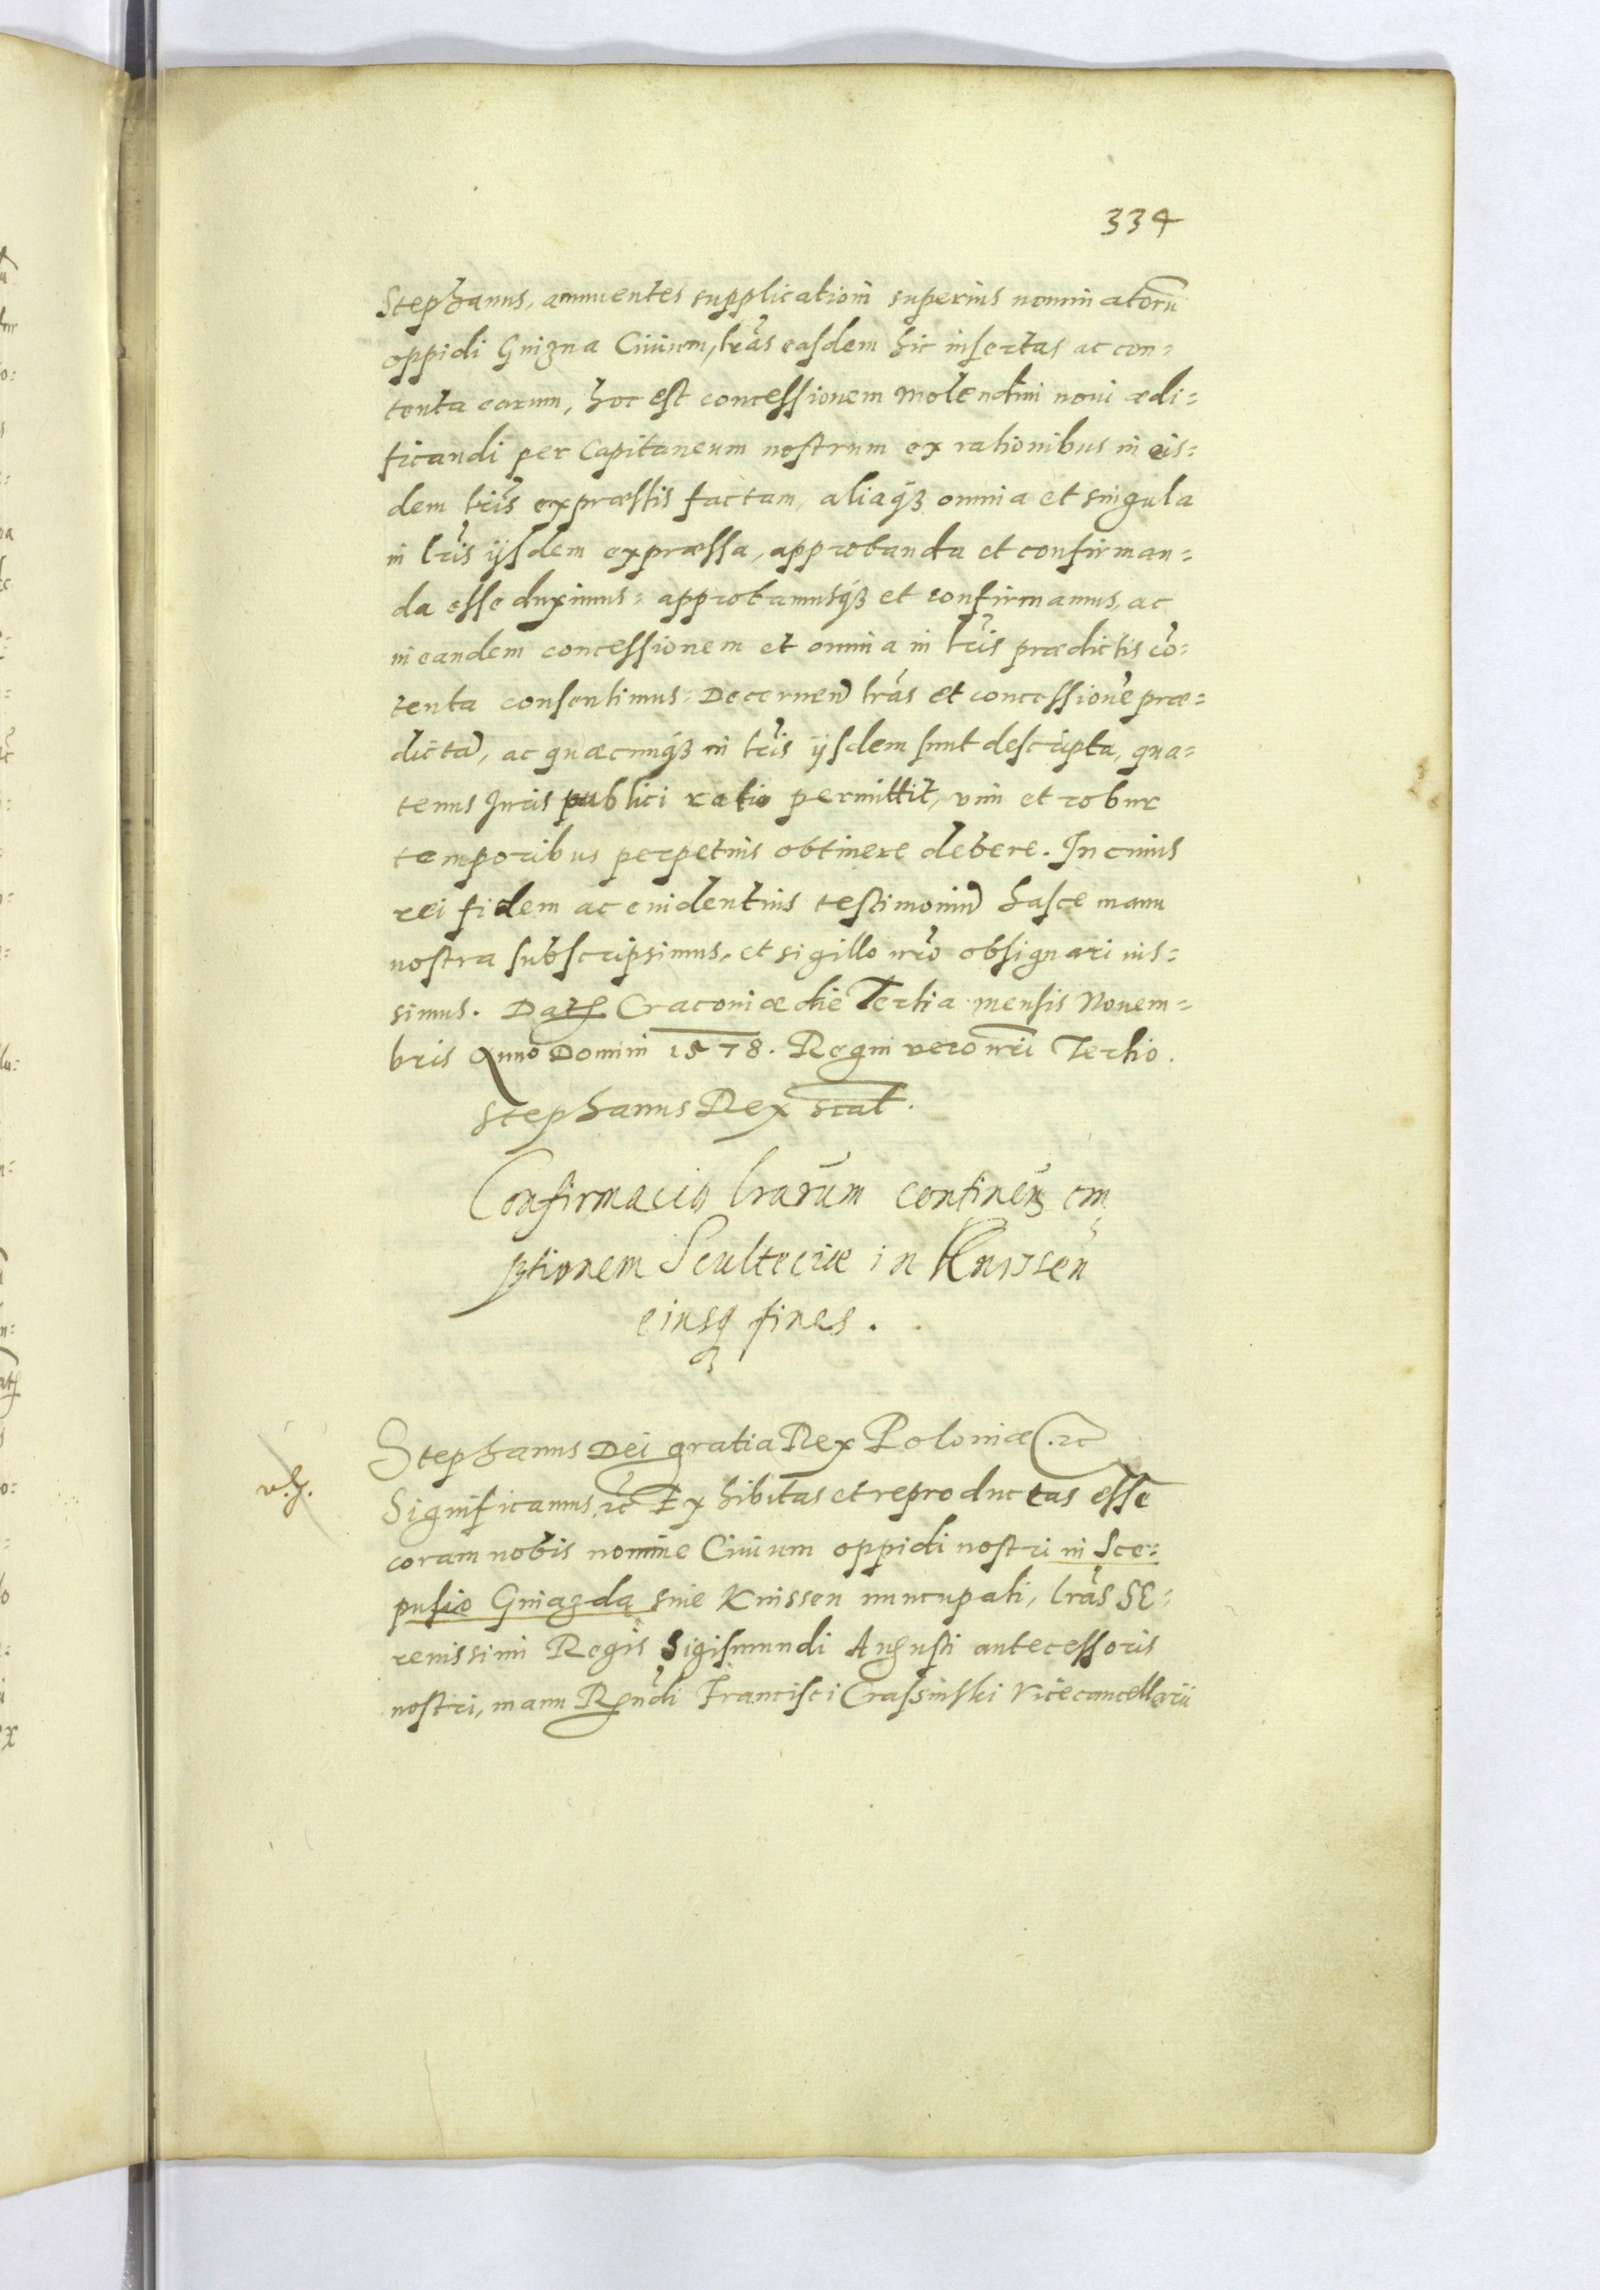 334
Stephanus, annuentes supplicationi superius nominatorũ
oppidi Gnizna Ciuium, lrãs easdem hic insertas ac con=
tenta earum, hoc est concessionem Molendini noui ædi=
ficandi per Capitaneum nostrum ex rationibus in eis=
dem lrĩs expræssis factam, aliaqȝ omnia et singula
in lrĩs ijsdem expræssa, approbanda et confirman=
da esse duximus: approbamusqȝ et confirmamus, ac
in eandem concessionem et omnia in lrĩs prædictis cõ=
tenta consentimus: Decernen̄ lrãs et concessionẽ præ=
dictã, ac quæcunqȝ in lrĩs ijsdem sunt descripta, qua=
tenus Juris publici ratio permittit, vim et robur
temporibus perpetuis obtinere debere. In cuius
rei fidem ac euidentius testimoniũ hasce manu
nostra subscripsimus, et sigillo nrõ obsignari ius=
simus. Datȝ Cracouiæ die Tertia mensis Nouem=
bris Anno Domini 1578. Regni vero nrĩ Tertio.
Stephanus Rex scat.
Confirmacio lrarũm continen̄ em
ptionem Sculteciæ in Knissen
eiusqȝ fines.
Stephanus Dei gratia Rex Poloniæ ꝛc
Significamus, ꝛc Exhibitas et reproductas esse
coram nobis nomine Ciuium oppidi nostri in Sce=
pusio Gniazda siue Knissen nuncupati, lrãs Se=
renissimi Regis Sigismundi Augusti antecessoris
nostri, manu Rñdi Francisci Crassinski Vicecancellarii